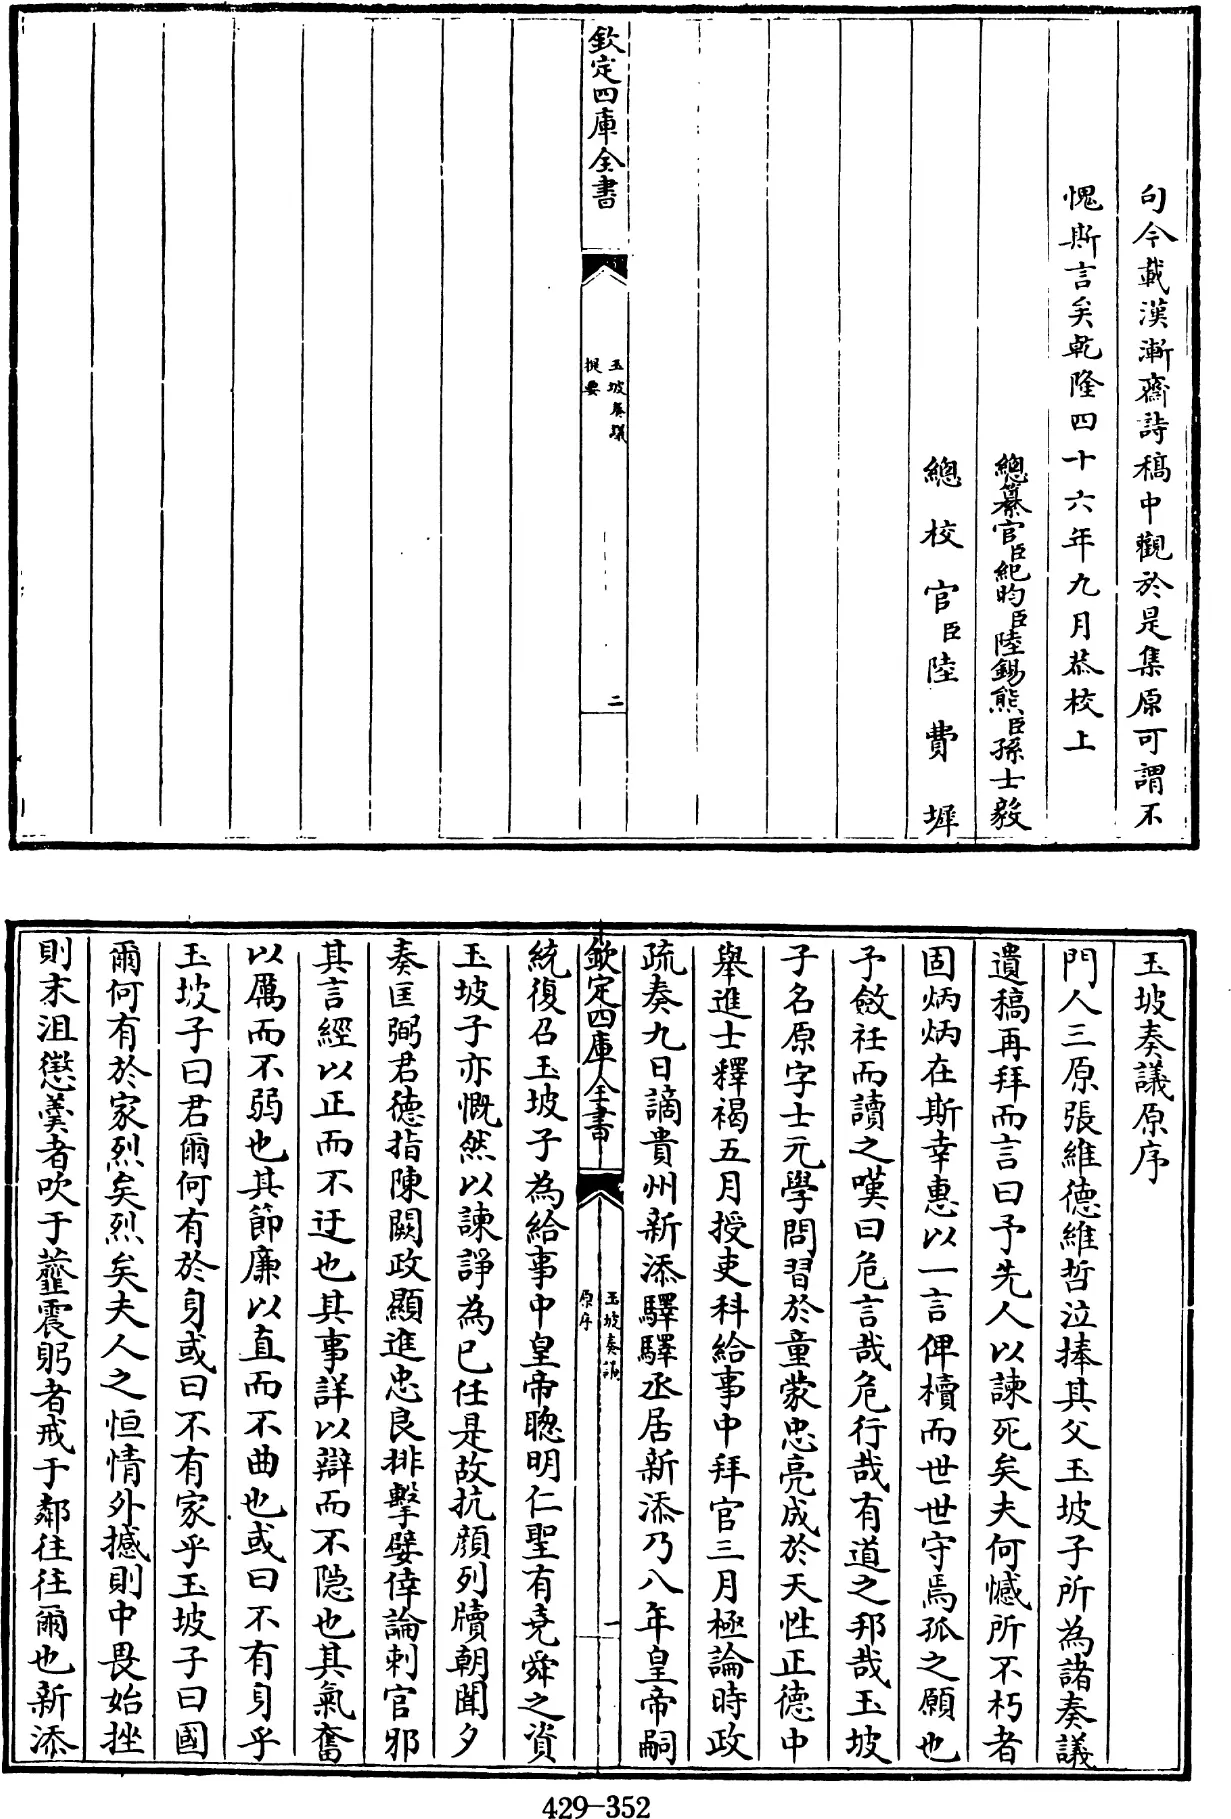 句今載漢漸齋詩稿中觀於是集原可謂不
愧斯言矣乾隆四十六年九月恭校上
總纂官臣紀昀臣陸錫熊臣孫士毅
總校官臣陸費墀
欽定四庫全書
玉坡奏議
提要
二
玉坡奏議原序
門人三原張維德維哲泣捧其父玉坡子所為諸奏議
遺稿再拜而言曰予先人以諫死矣夫何憾所不朽者
固炳炳在斯幸惠以一言俾櫝而世世守焉孤之願也
予斂衽而讀之嘆曰危言哉危行哉有道之邦哉玉坡
子名原字士元學問習於童蒙忠亮成於天性正德中
舉進士釋褐五月授吏科給事中拜官三月極論時政
疏奏九日謫貴州新添驛驛丞居新添乃八年皇帝嗣
欽定四庫全書
玉坡奏議
原序
一
統復召玉坡子為給事中皇帝聰明仁聖有堯舜之資
玉坡子亦慨然以諫諍為已任是故抗顔列牘朝聞夕
奏匡弼君德指陳闕政顯進忠良排擊嬖倖論刺官邪
其言經以正而不迂也其事詳以辯而不隠也其氣奮
以厲而不弱也其節廉以直而不曲也或曰不有身乎
玉坡子曰君爾何有於身或曰不有家乎玉坡子曰國
爾何有於家烈矣烈矣夫人之恒情外撼則中畏始挫
則末沮懲羮者吹于虀震躬者戒于鄰往往爾也新添
429-352